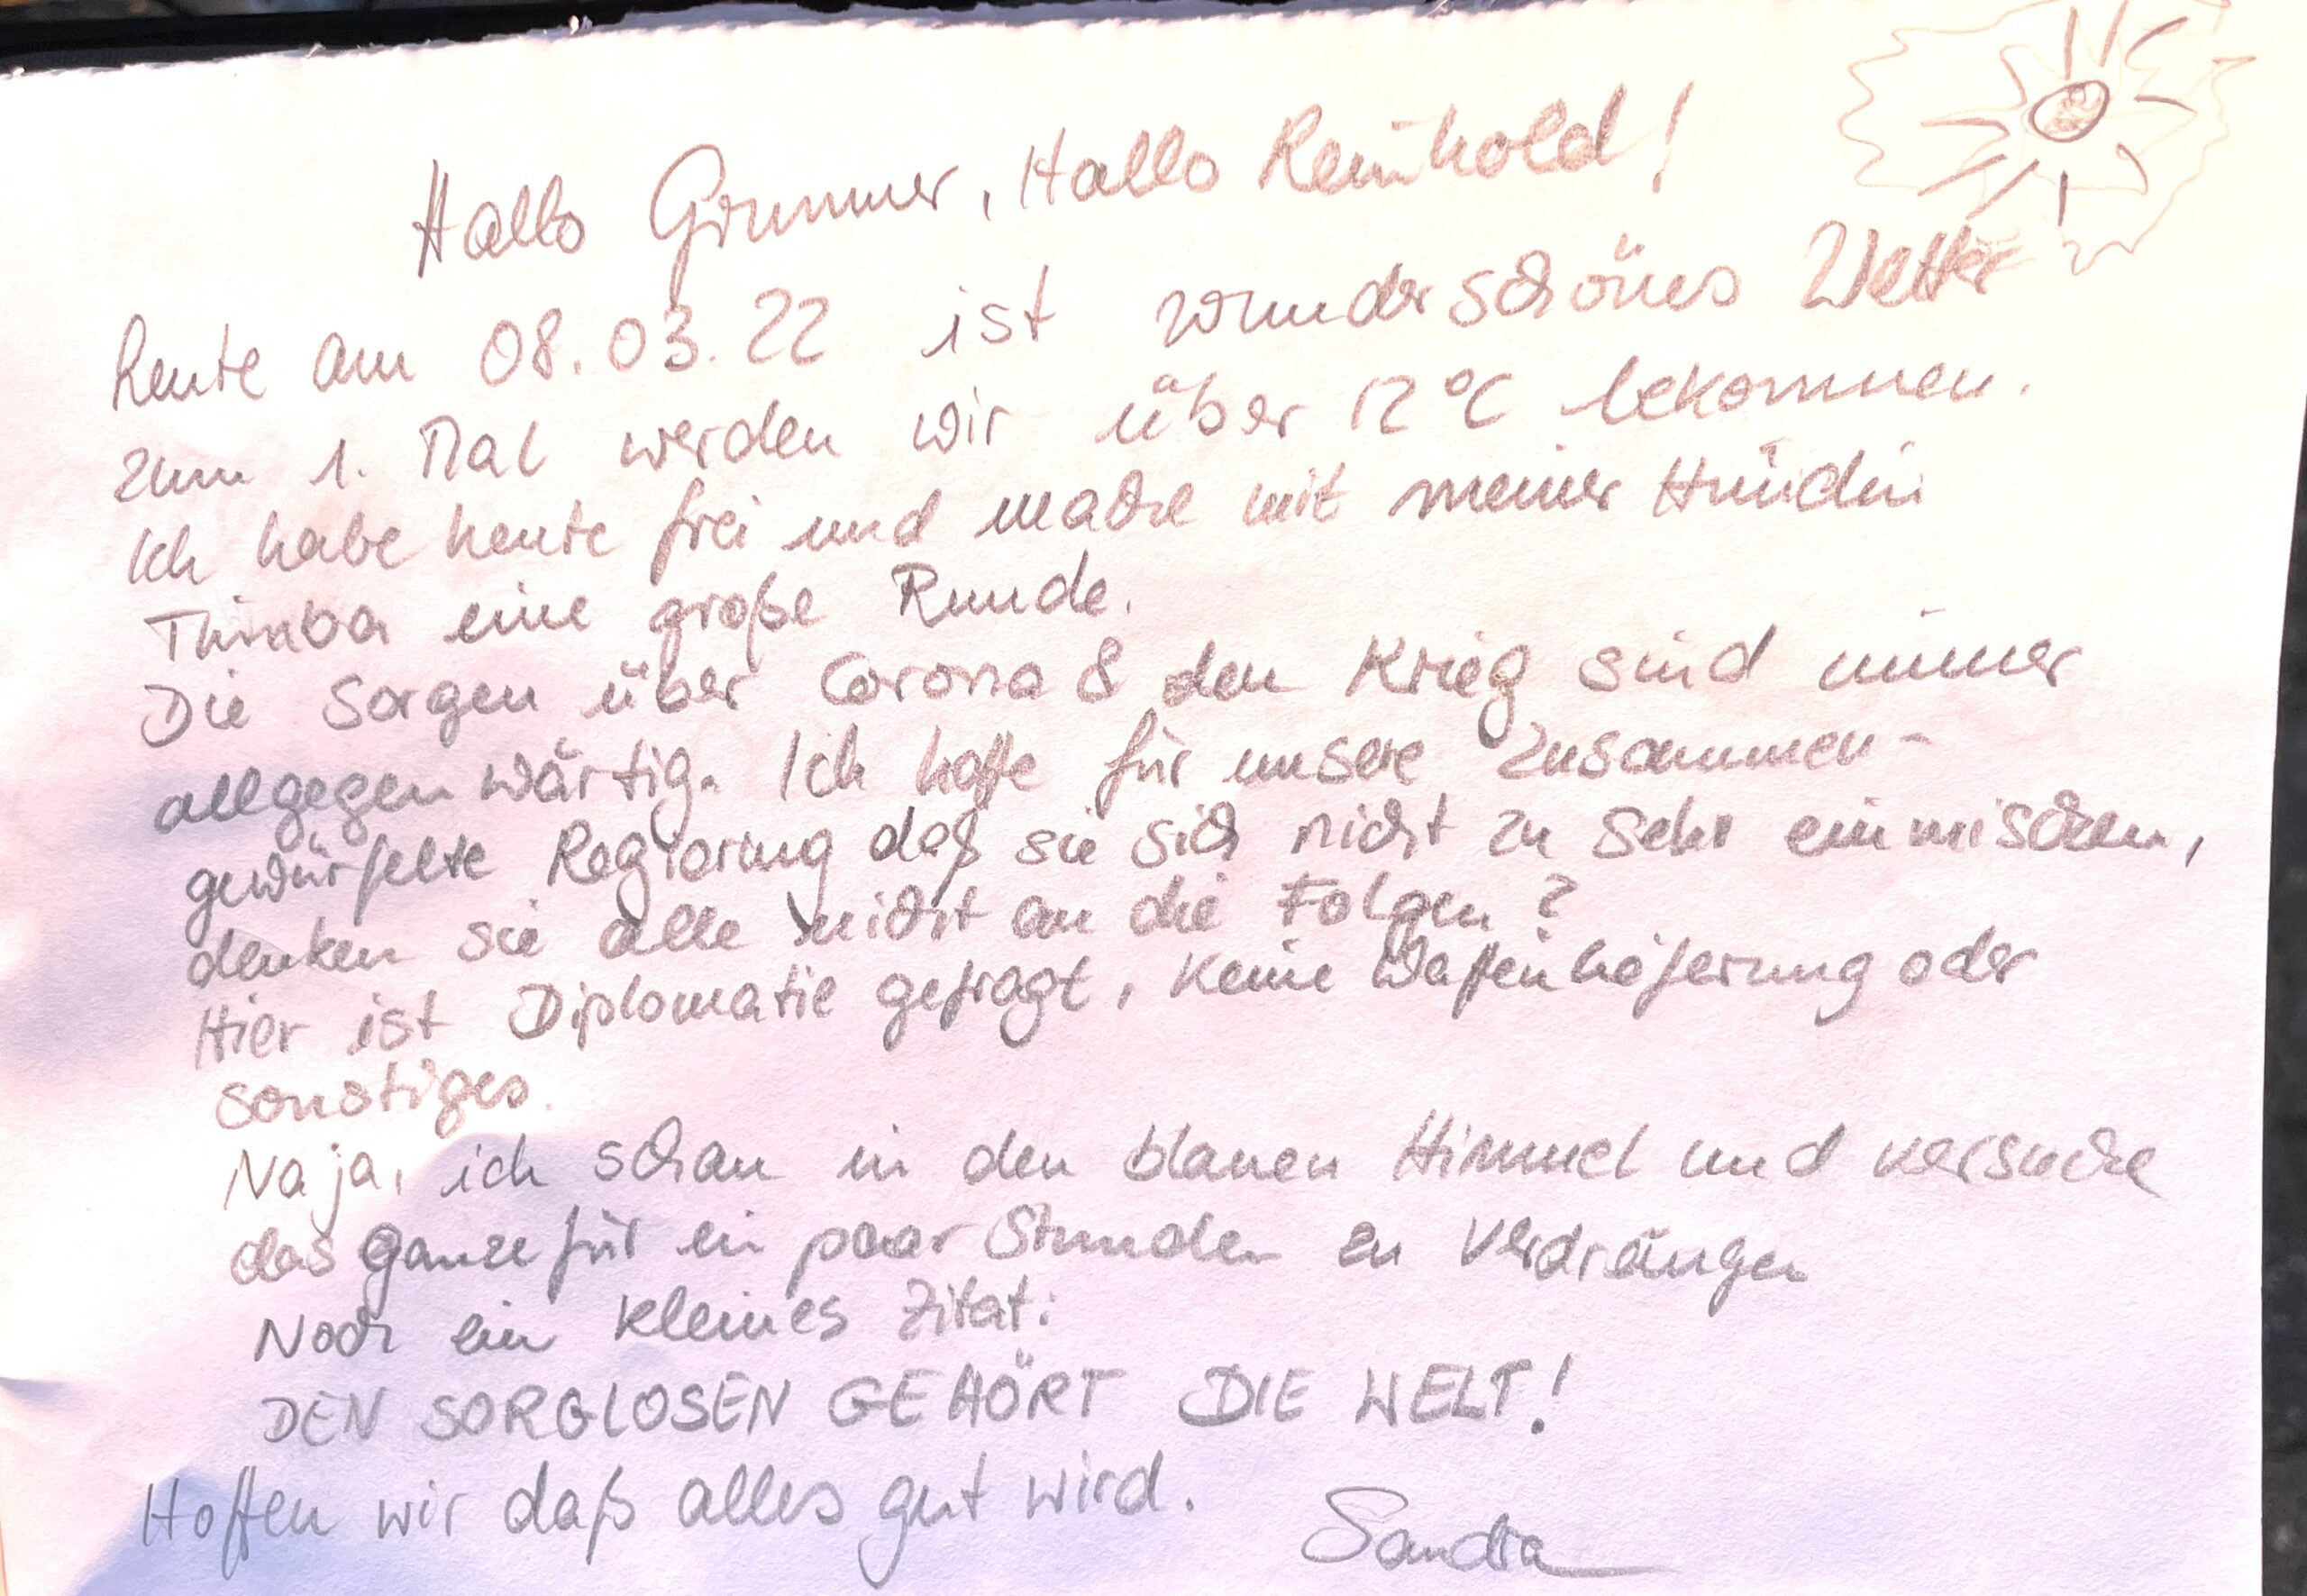 Hallo Grummer, Hallo Reinhold!
heute am 08.03.22 ist wunderschönes Wetter
zum 1. Mal werden wir über 12°C bekommen.
Ich habe heute frei und mache mit meiner Hündin
Thimba eine große Runde.
Die Sorgen über Corona & den Krieg sind immer
allgegenwärtig. Ich hoffe für unsere Zusammen-
gewürfelte Regierung daß sie sich nicht zu sehr einmischen,
denken sie alle nicht an die Folgen?
Hier ist Diplomatie gefragt, keine Waffenlieferung oder
sonstiges.
Na ja, ich schau in den blauen Himmel und versuche
das Ganze für ein paar Stunden zu verdrängen
Noch ein kleines Zitat:
DEN SORGLOSEN GEHÖRT DIE WELT!
Hoffen wir daß alles gut wird.
Sandra